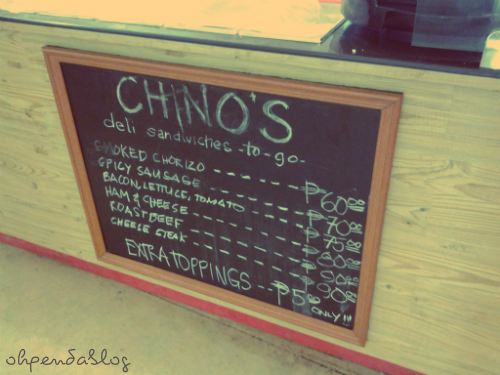 CHINO'S
deli sandwiches -to-go-
SMOKED CHORIZO ------ ₱60.00
SPICY SAUSAGE ------ ₱70.00
BACON, LETTUCE, TOMATO ---- ₱75.00
HAM & CHEESE ------ ₱80.00
ROAST BEEF ------ ₱90.00
CHEESE STEAK ------ ₱90.00
EXTRA TOPPINGS -- ₱5.00
ONLY!!!
ohpendablog